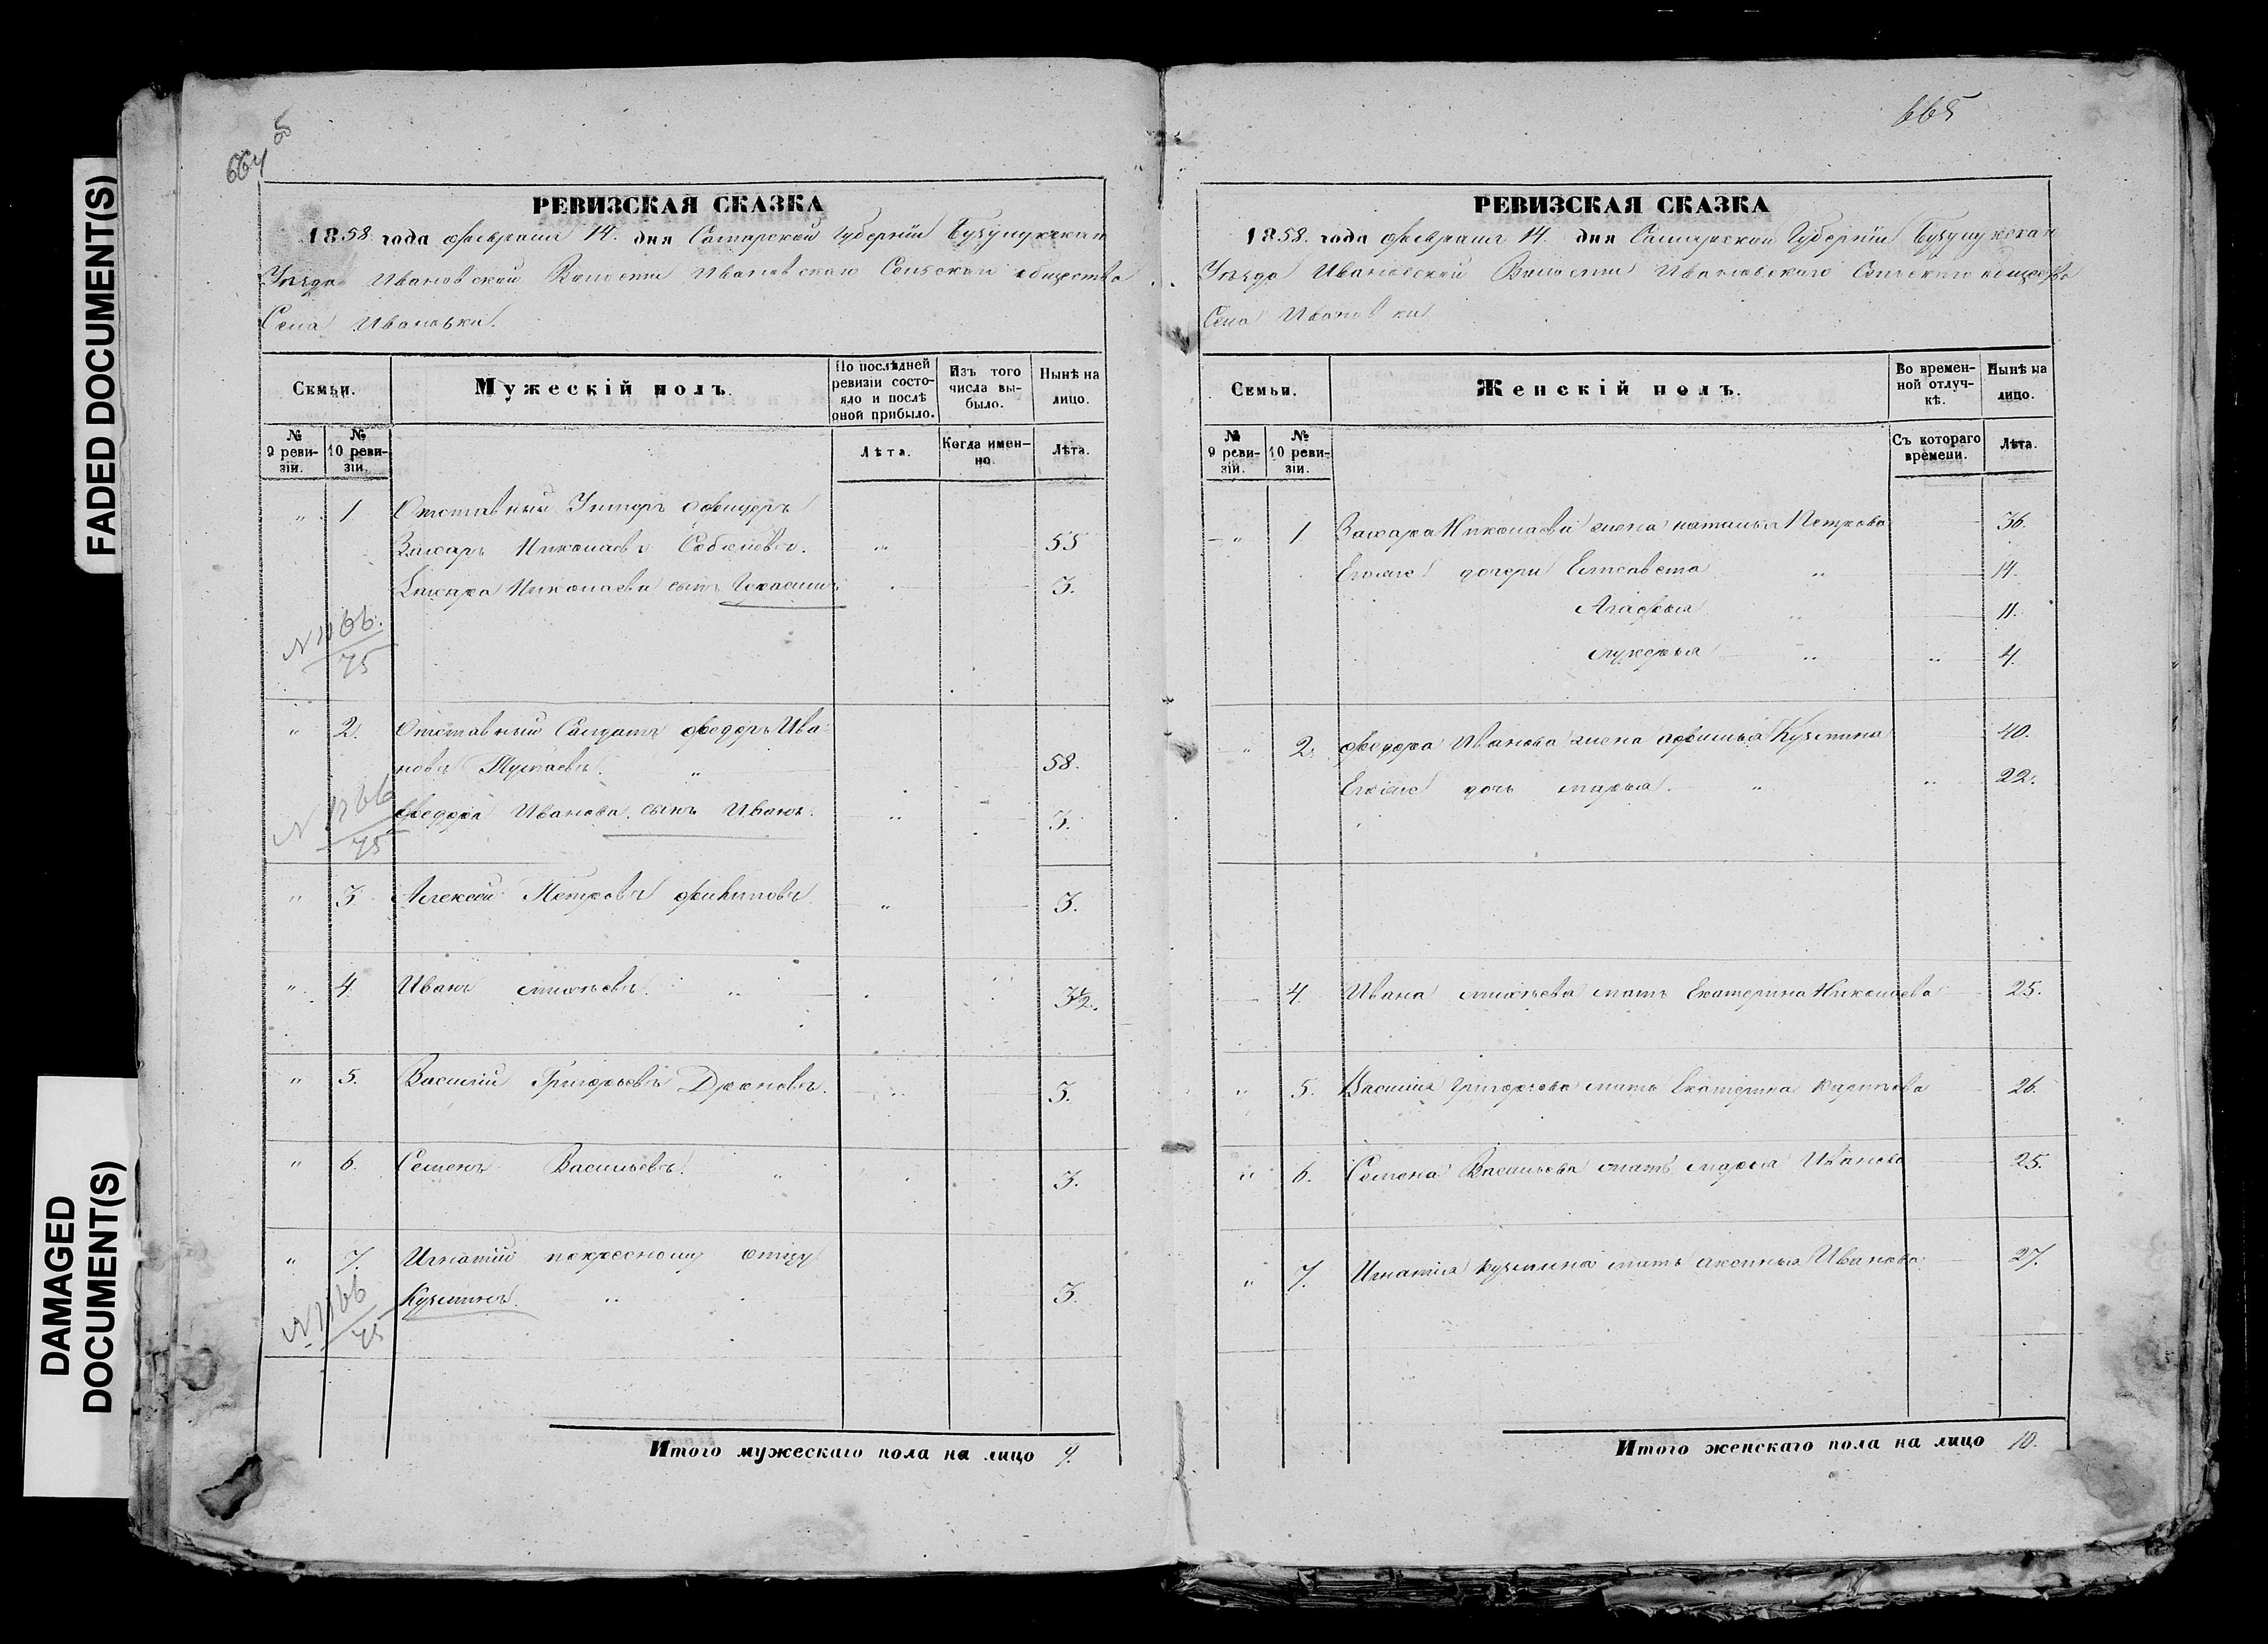 FADED DOCUMENT(S)
DAMAGED
DOCUMENT(S)
664
РЕВИЗСКАЯ СКАЗКА
1858 года февраля 14. дня Самарской Губерніи Бузулукскаго
Уѣзда Ивановской Волости Ивановскаго Сельскаго общества
Села Ивановки.
Семьи.
Мужескій полъ.
По послѣдней ревизіи состояло и послѣ оной прибыло.
Изъ того числа выбыло.
Нынѣ на лицо.
№ 9 ревизіи.
№ 10 ревизіи.
Лѣта.
Когда именно.
Лѣта.
„ 1. Отставный Унтеръ офицеръ
Захаръ Николаевъ 55
Захара Николаева сынъ Герасимъ 3.
75
„ 2. Отставный Салдатъ федоръ Ива
новъ 58.
федора Иванова сынъ Иванъ. 3.
75
„ 3. Алексей Петровъ 3.
„ 4. Иванъ „
„ 5. Василій Григорьевъ Дроновъ. 3.
„ 6. Семенъ Васильевъ. „ 3.
„ 7. Игнатій покресному отцу
Кузминъ. „ 3.
75
Итого мужескаго пола на лицо 9.
665
РЕВИЗСКАЯ СКАЗКА
1858. года февраля 14. дня Самарской Губерніи Бузулукскаго
Уѣзда Ивановской Волости Ивановскаго Сельскаго общества
Села Ивановки
Семьи.
Женскій полъ.
Во временной отлучкѣ.
Нынѣ на лицо.
№ 9 ревизіи.
№ 10 ревизіи.
Съ котораго времени.
Лѣта.
„ 1 Захара Николаева жена наталья Петрова 36.
Егоже дочери Елисавета „ 14.
Агафья „ 11.
лукерья „ „ 4.
„ 2. федора Иванова жена афимья Кузмина 40.
Егоже дочь марья. „ „ 22.
4. Ивана мать Екатерина Николаева 25.
„ 5. Василія Григорьева мать Екатерина 26.
„ 6. Семена Васильева мать марья Иванова 25.
„ 7. Игнатія кузмина мать аксинья Иванова 27.
Итого женскаго пола на лицо 10.